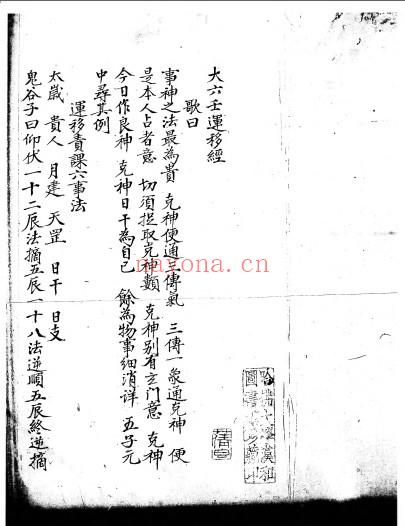 大六壬運移經
歌曰
事神之法最為貴 克神便通三傳氣 三傳一象通克神 便
是本人占者意 切須提取克神類 克神別有玄門意 克神
今日作良神 克神日干為自己 餘為物事細消詳 五子元
中尋其例
運移責課六事法
太歲 貴人 月建 天罡 日干 日支
鬼谷子曰仰伏一十二辰法摘五辰一十八法逆順五辰終逆摘
nayona.cn